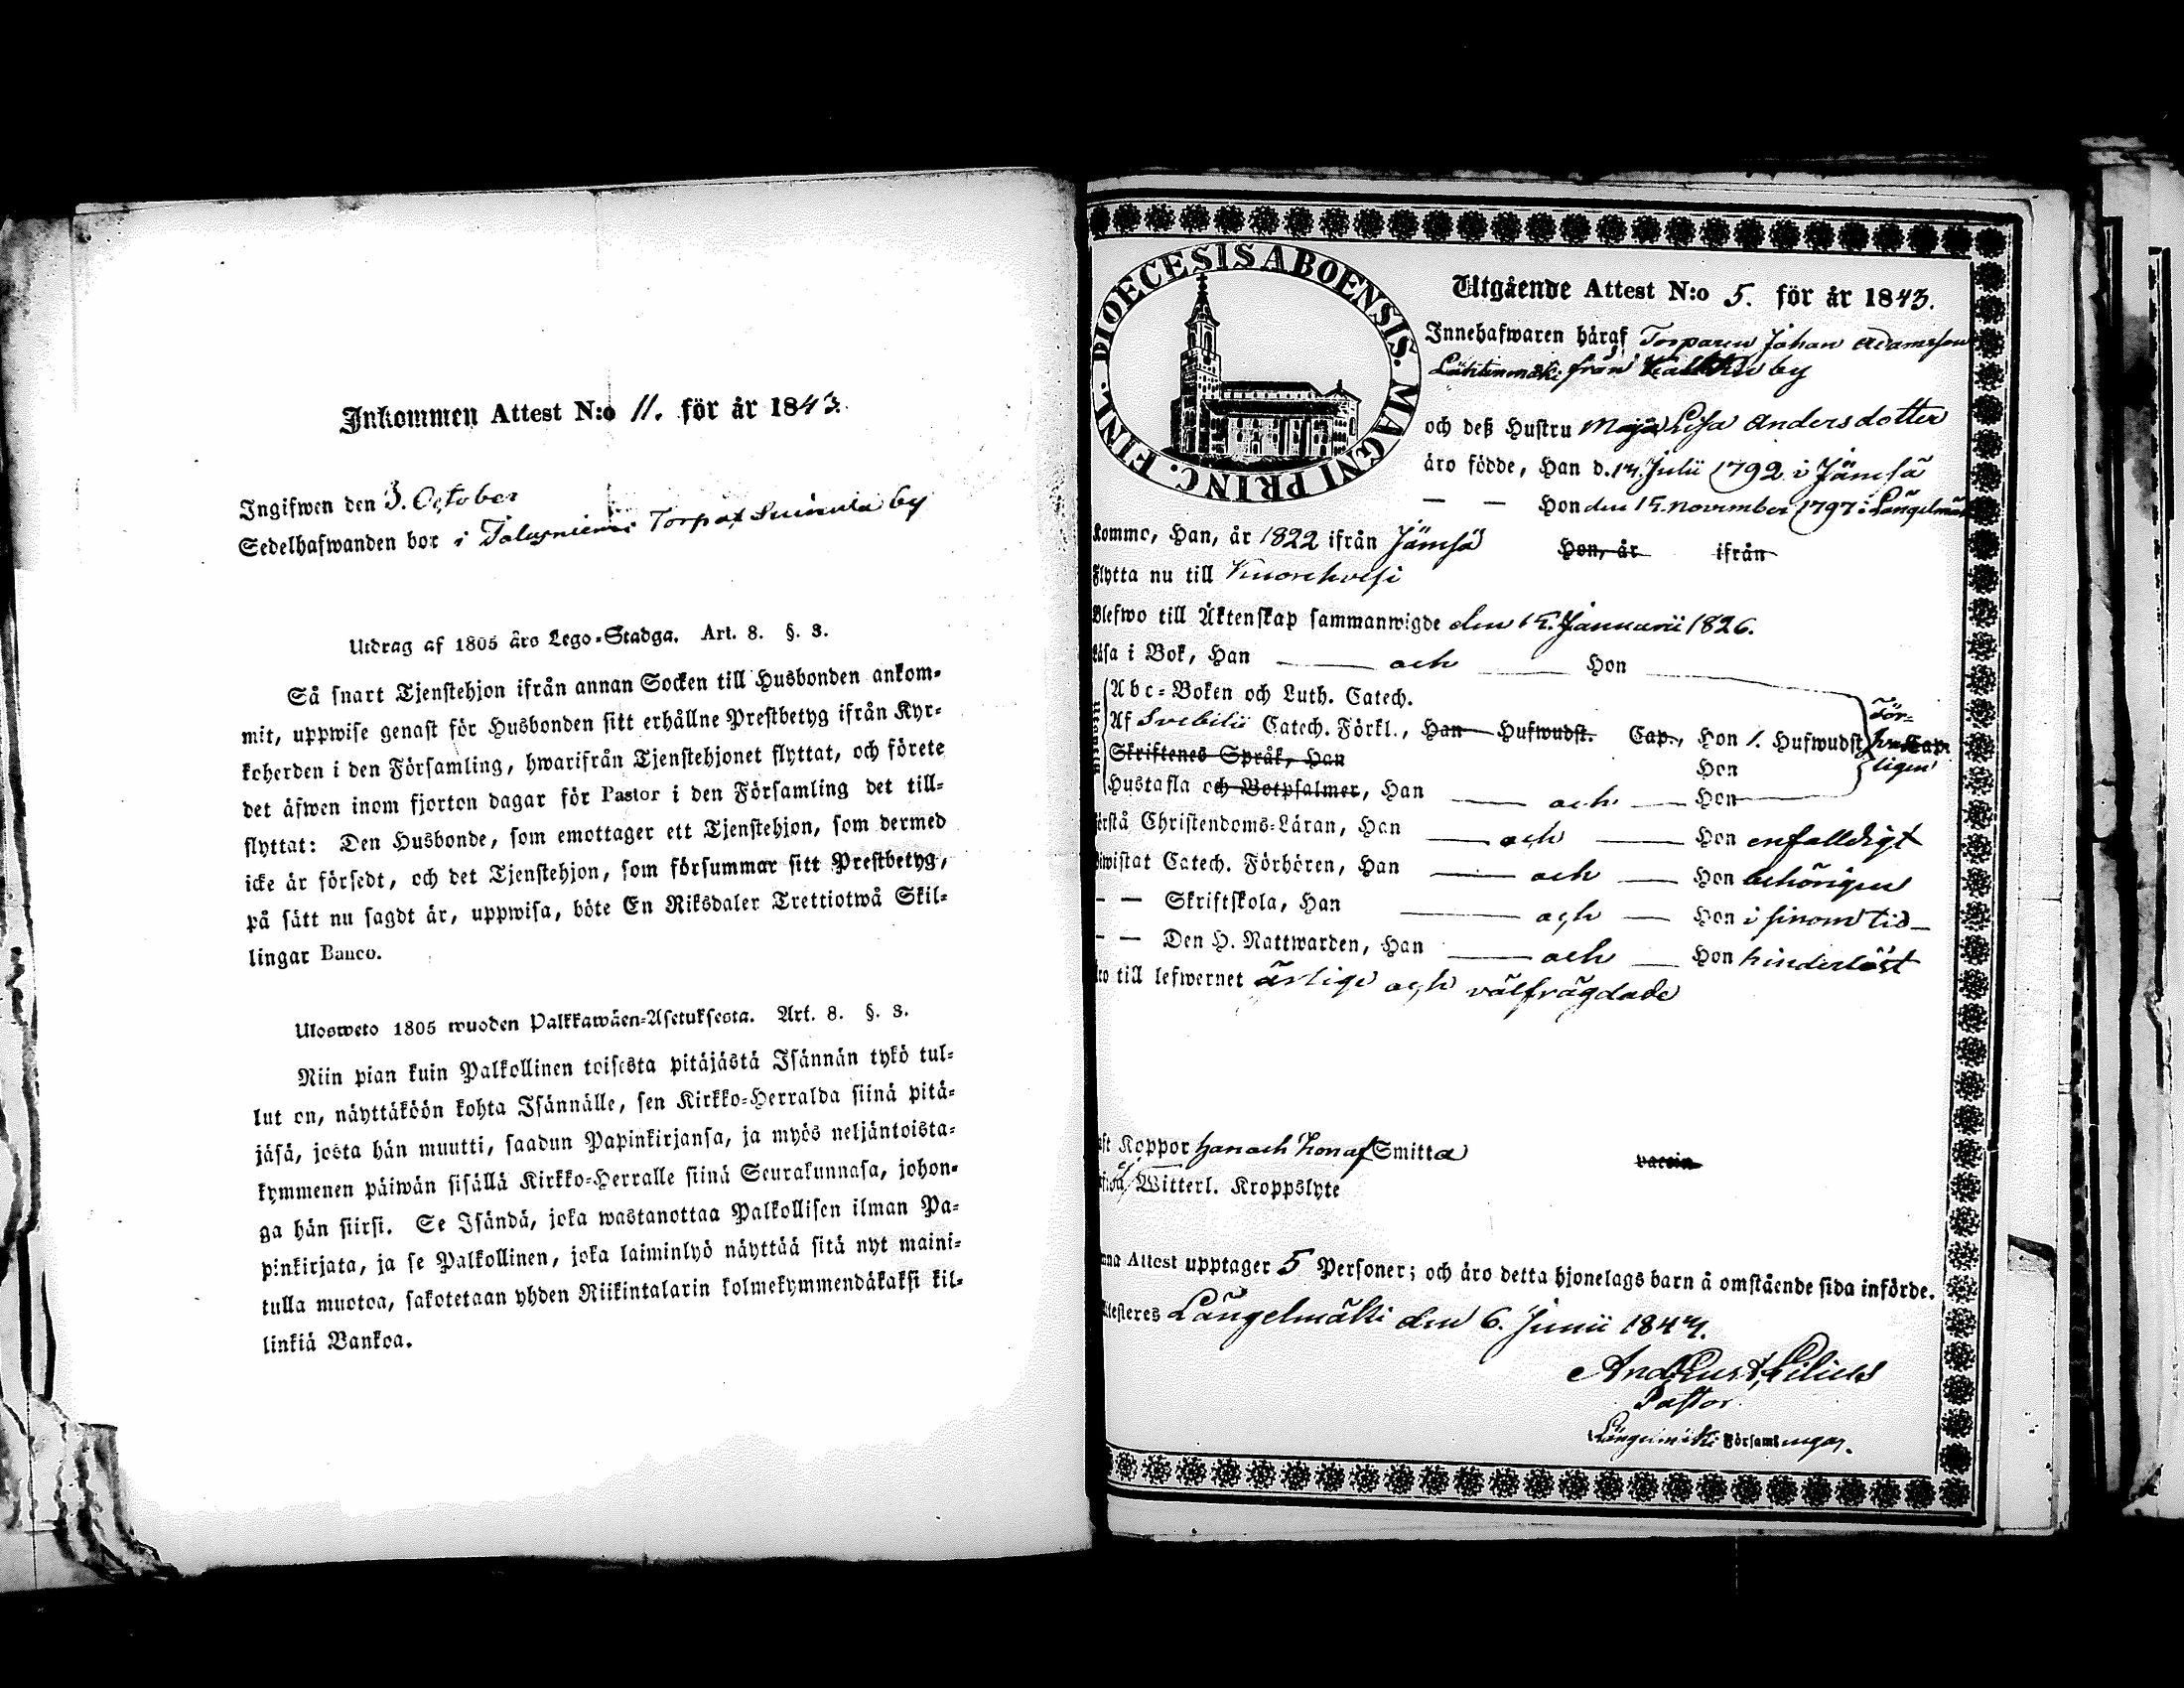 Inkommen Attest N:o 11. för år 1843.
Ingifwen den 3. October
Sedelhafwanden bor i Talasniemi Torp af Suinula by
Utdrag af 1805 års Lego-Stadga. Art. 8. §. 3.
Så snart Tjenstehjon ifrån annan Socken till Husbonden ankom-
mit, uppwise genast för Husbonden sitt erhållne Prestbetyg ifrån Kyr-
koherden i den Församling, hwarifrån Tjenstehjonet flyttat, och förete
det äfwen inom fjorton dagar för Pastor i den Församling det till-
flyttat: Den Husbonde, som emottager ett Tjenstehjon, som dermed
icke är försedt, och det Tjenstehjon, som försummar sitt Prestbetyg,
på sätt nu sagdt är, uppwisa, böte En Riksdaler Trettiotwå Skil-
lingar Banco.
Ulosweto 1805 wuoden Palkkawäen-Asetuksesta. Art. 8. §. 3.
Niin pian kuin Palkollinen toisesta pitäjästä Isännän tykö tul-
lut on, näyttäköön kohta Isännälle, sen Kirkko-Herralda siinä pitä-
jäsä, josta hän muutti, saadun Papinkirjansa, ja myös neljäntoista-
kymmenen päiwän sisällä Kirkko-Herralle siinä Seurakunnasa, johon-
ga hän siirsi. Se Isändä, joka wastanottaa Palkollisen ilman Pa-
pinkirjata, ja se Palkollinen, joka laiminlyö näyttää sitä nyt maini-
tulla muotoa, sakotetaan yhden Riikintalarin kolmekymmendäkaksi kil-
linkiä Bankoa.
DIOECESIS ABOENSIS. MAGNI PRINC. FINL.
Utgående Attest N:o 5. för år 1843.
Innehafwaren häraf Torparen Johan Adamsson
Lähtenmäki från by
och deß Hustru Maja Lisa Andersdotter
äro födde, Han d. 14. Julii 1792 i Jämsä
— — Hon den 15. november 1797 i Längelmäki
komme, Han, år 1822 ifrån Jämsä Hon, år ifrån
Flytta nu till Kuorehvesi
Blefwo till Äktenskap sammanwigde den 15. Januarii 1826.
Läsa i Bok, Han — och — Hon
Abc-Boken och Luth. Catech.
Af Svebilii Catech. Förkl., Han Hufwudst. Cap., Hon 1. Hufwudst. Cap.
För-
Skriftenes Språk, Han Hon
ligen
Hustafla och Botpsalmer, Han — och — Hon
Förstå Christendoms-Läran, Han — och — Hon enfalldigt
Biwistat Catech. Förhören, Han — och — Hon behörigen
— — Skriftskola, Han — och — Hon i sinom tid —
— — Den H. Nattwarden, Han — och — Hon hinderlöst
äro till lefwernet ärlige och välfrägdade
Koppor han och hon af Smitta vaccin
Witterl. Kroppslyte
nna Attest upptager 5 Personer; och äro detta hjonelags barn å omstående sida införde.
Attesteres Längelmäki den 6. Junii 1843.
And. Gust. Lilius
Pastor
Längelmäki Församlingar.